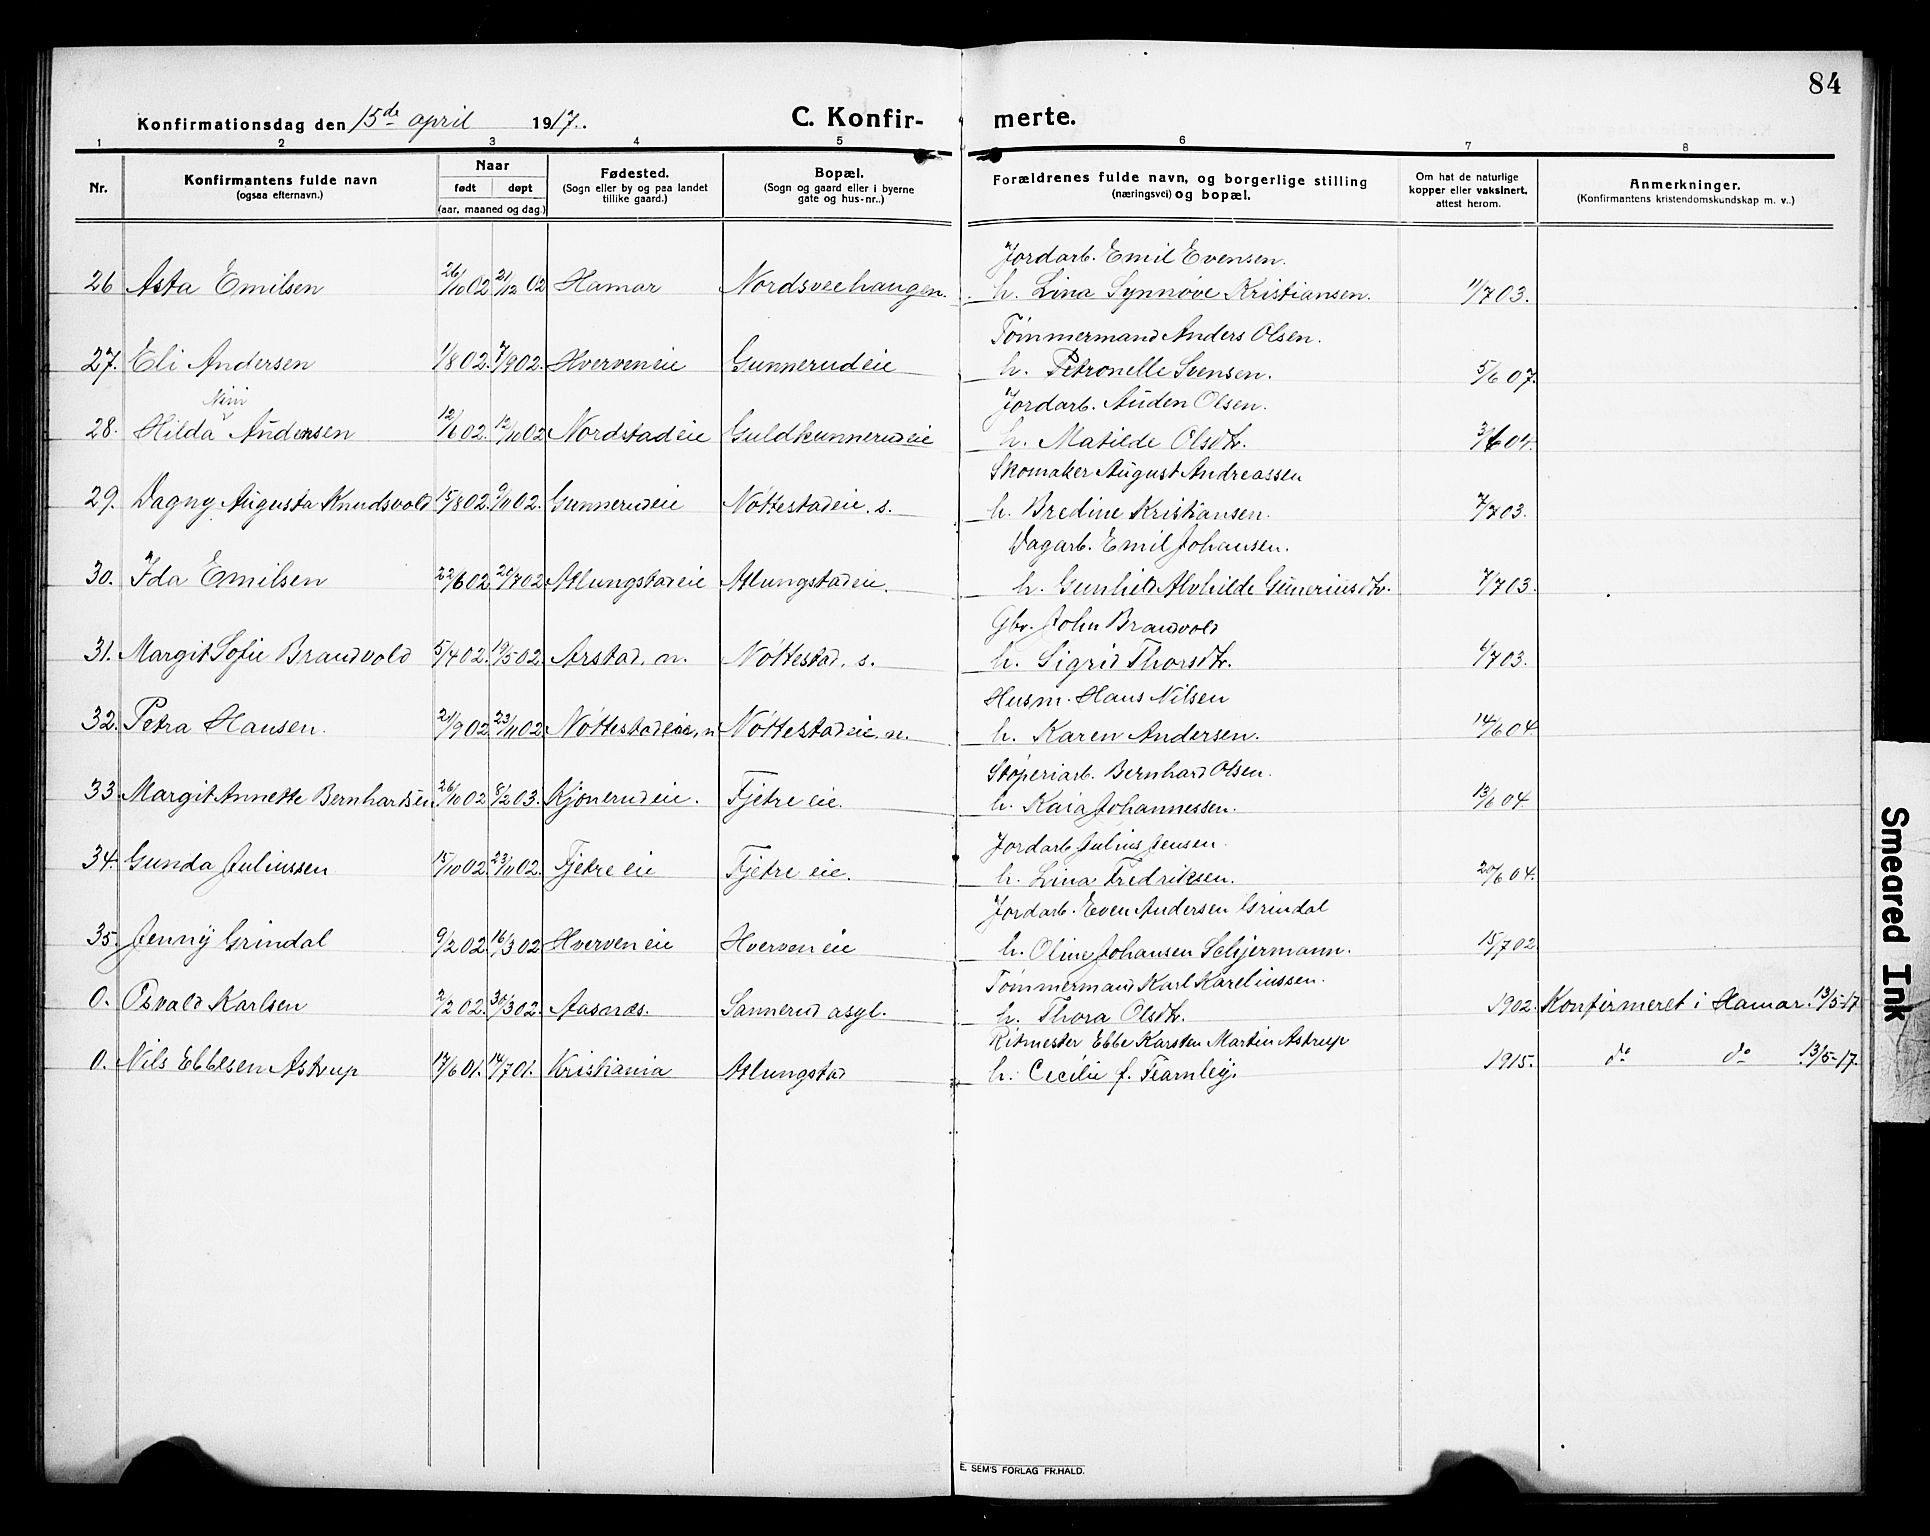 84
Konfirmationsdag den 15de april 1917.
C. Konfirmerte.
1 2 3 4 5 6 7 8
Nr.
Konfirmantens fulde navn
(ogsaa efternavn.)
Naar
født døpt
(aar, maaned og dag.)
Fødested.
(Sogn eller by og paa landet
tillike gaard.)
Bopæl.
(Sogn og gaard eller i byerne
gate og hus-nr..)
Forældrenes fulde navn, og borgerlige stilling
(næringsvei) og bopæl.
Om hat de naturlige
kopper eller vaksinert,
attest herom.
Anmerkninger.
(Konfirmantens kristendomskundskap m. v..)
Jordarb. Emil Evensen.
26 Asta Emilsen 26/10 02 21/12 02 Hamar Nordsveehaugen. h. Lina Synnøve Kristiansen. 11/7 03.
Tømmermand Anders Olsen.
27. Eli Andersen 1/8 02. 7/9 02. Hverven eie Gunnerud eie h. Petronelle Svensen. 5/6 07.
Jordarb. Auden Olsen.
28. Hilda Audensen 12/6 02. 12/10 02 Nordstad eie Guldkunnerud eie h. Matilde Olsdtr. 3/6 04.
Skomaker August Andreassen
29. Dagny Augusta Knudsvold 15/8 02. 9/11 02. Gunnerud eie Nøttestad eie. s. h. Bredine Kristiansen. 7/7 03.
Dagarb. Emil Johansen.
30. Ida Emilsen 22/6 02 20/7 02 Atlungstad eie Atlungstad eie. h. Gunhild Alvhilde Guneriusdtr. 7/7 03.
Gbr. John Brandvold
31. Margit Sofie Brandvold 5/4 02. 19/5 02. Arstad. n. Nøttestad. s. h. Sigrid Thorsdtr. 6/7 03.
Husm. Hans Nilsen
32. Petra Hansen. 21/9 02. 23/11 02. Nøttestad eie, n Nøttestad eie. n. h. Karen Andersen. 14/6 04.
Støperiarb. Bernhard Olsen.
33. Margit Annette Bernhardsen 26/10 02 8/2 03. Kjønerud eie. Tjetre eie. h. Kaia Johannessen. 13/6 04
Jordarb. Julius Jensen.
34. Gunda Juliussen 15/10 02. 23/11 02. Tjetre eie Tjetre eie. h. Lina Fredriksen. 20/6 04.
Jordarb. Even Andersen Grindal
35. Jenny Grindal 9/2 02. 16/3 02 Hverven eie Hverven eie h. Oline Johansen Schjermann. 15/7 02.
Tømmermand Karl Kareliussen.
0. Osvald Karlsen 2/2 02. 30/3 02. Aasnæs. Sannerud asyl. h. Thora Olsdtr. 1902. Konfirmeret i Hamar. 13/5-17
Ritmester Ebbe Karsten Martin Astrup
0. Nils Ebbesen Astrup 17/6 01. 14/7 01. Kristiania Atlungstad h. Cecilie f. Fearnley. 1915. do do 13/5-17.
E. SEM'S FORLAG FR.HALD.
Smeared Ink